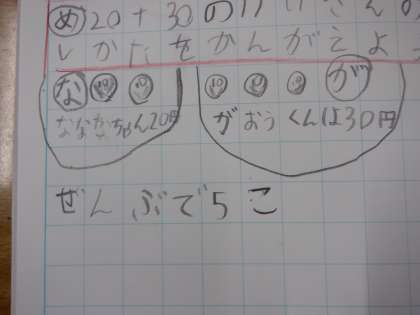 め 20+30のけいさんの
しかたをかんがえよう
な 10 10 10 10 10 が
ななかちゃん20円 がおうくんは30円
ぜんぶで5こ